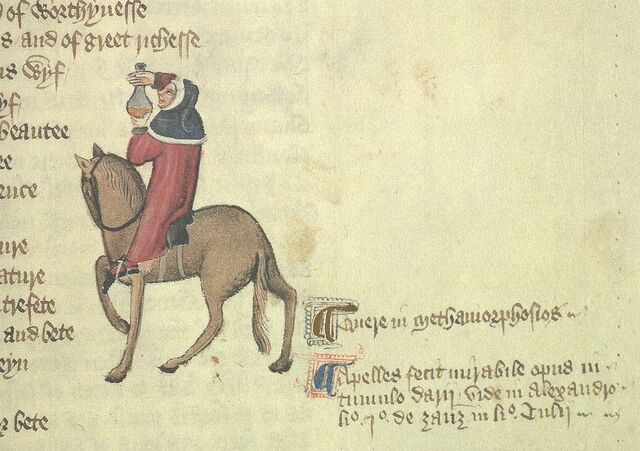 of worthynesse
s and of greet richesse
is wyf
yf
beautee
ee
ure
ature
ntrefete
and bete
eyn
r bete
Quere in methamorphosios
Apelles fecit mirabile opus in
tumulo darij vide in alexandro
li.º 1.º de zanz in li.º Tulij